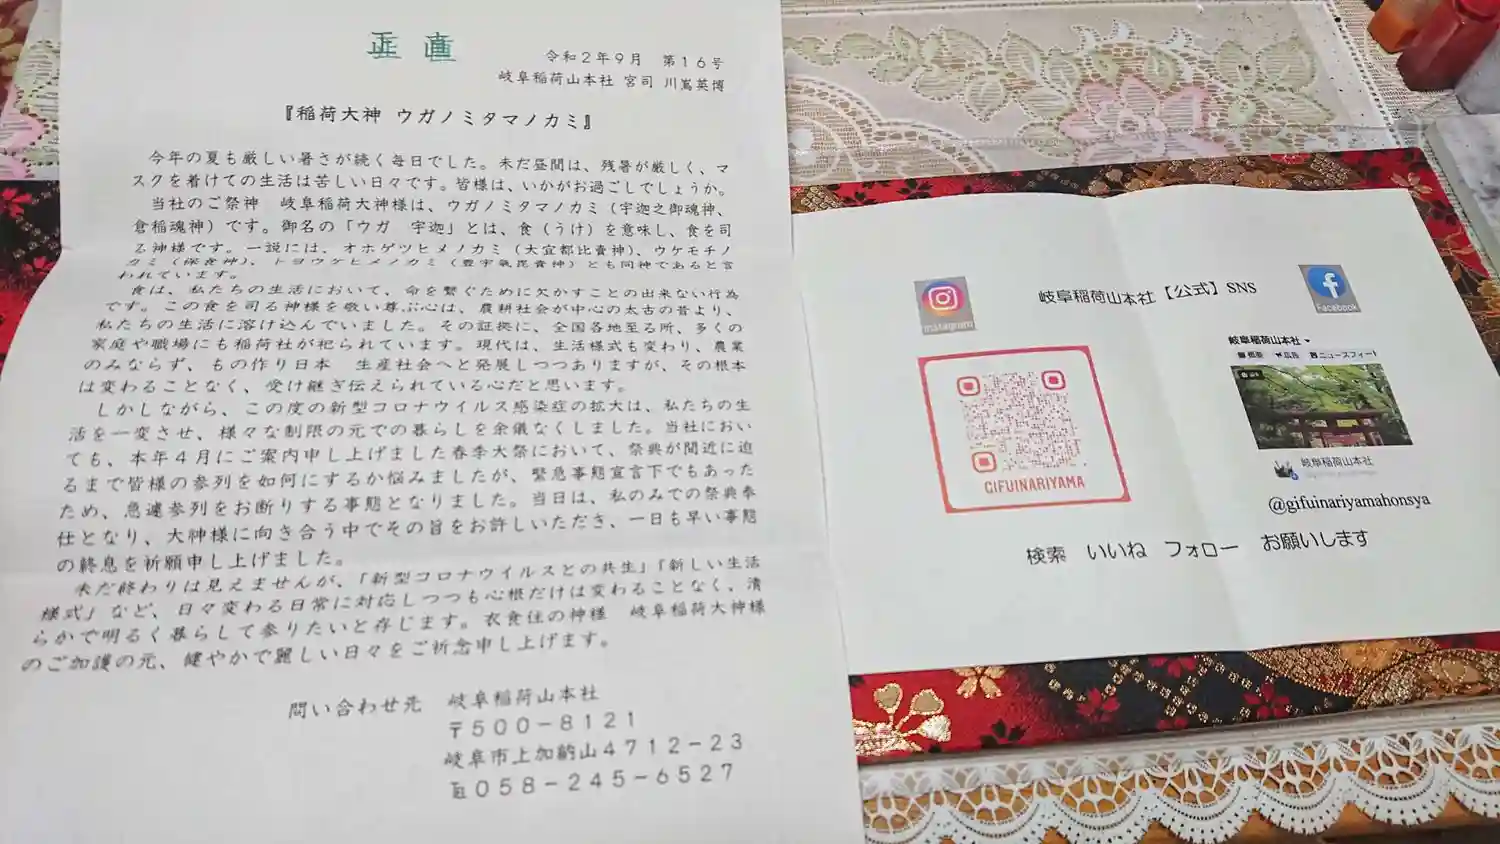 正直
令和2年9月　第16号
岐阜稲荷山本社 宮司 川嶌英博
『稲荷大神 ウガノミタマノカミ』
今年の夏も厳しい暑さが続く毎日でした。未だ昼間は、残暑が厳しく、マ
スクを着けての生活は苦しい日々です。皆様は、いかがお過ごしでしょうか。
当社のご祭神　岐阜稲荷大神様は、ウガノミタマノカミ（宇迦之御魂神、
倉稲魂神）です。御名の「ウガ　宇迦」とは、食（うけ）を意味し、食を司
る神様です。一説には、オホゲツヒメノカミ（大宜都比賣神）、ウケモチノ
カミ（保食神）、トヨウケヒメノカミ（豊宇氣毘賣神）とも同神であると言
われています。
食は、私たちの生活において、命を繋ぐために欠かすことの出来ない行為
です。この食を司る神様を敬い尊ぶ心は、農耕社会が中心の太古の昔より、
私たちの生活に溶け込んでいました。その証拠に、全国各地至る所、多くの
家庭や職場にも稲荷社が祀られています。現代は、生活様式も変わり、農業
のみならず、もの作り日本　生産社会へと発展しつつありますが、その根本
は変わることなく、受け継ぎ伝えられている心だと思います。
しかしながら、この度の新型コロナウイルス感染症の拡大は、私たちの生
活を一変させ、様々な制限の元での暮らしを余儀なくしました。当社におい
ても、本年4月にご案内申し上げました春季大祭において、祭典が間近に迫
るまで皆様の参列を如何にするか悩みましたが、緊急事態宣言下でもあった
ため、急遽参列をお断りする事態となりました。当日は、私のみでの祭典奉
仕となり、大神様に向き合う中でその旨をお許しいただき、一日も早い事態
の終息を祈願申し上げました。
未だ終わりは見えませんが、「新型コロナウイルスとの共生」「新しい生活
様式」など、日々変わる日常に対応しつつも心根だけは変わることなく、清
らかで明るく暮らして参りたいと存じます。衣食住の神様　岐阜稲荷大神様
のご加護の元、健やかで麗しい日々をご祈念申し上げます。
問い合わせ先　岐阜稲荷山本社
〒500－8121
岐阜市上加納山4712－23
℡058－245－6527
Instagram
岐阜稲荷山本社【公式】SNS
Facebook
GIFUINARIYAMA
岐阜稲荷山本社
概要 広告 ニュースフィード
岐阜稲荷山本社
@gifuinariyamahonsya
検索　いいね　フォロー　お願いします